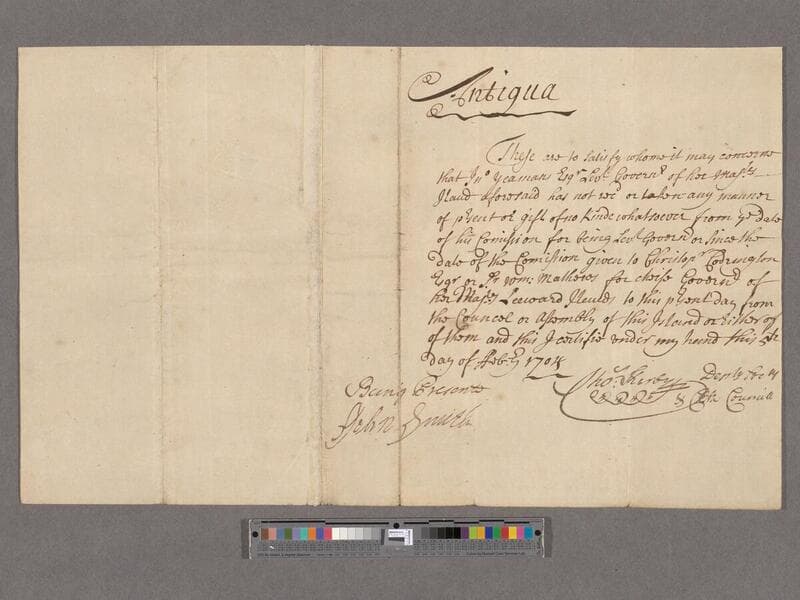 Antiqua
These are to satisfy whome it may concerne
that Jno. Yeamans Esqr. Levt. Governr. of her Majtys
Iland aforesaid has not recd or taken any manner
of present or gift of no Kinde whatsoever from ye date
of his Comission for being Levt. Governd or since the
date of the Comission given to Christopr. Codrington
Esqr or Sr Wm: Mathews for cheife Governr of
her Majtys Leeward Ilands to this psent day from
the Councel or Assembly of this Island or Either of
of them and this I certifie under my hand this 5th
day of Feb:ry 1704
Being Present
John Smith
Tho: Depty Secry
& Councill